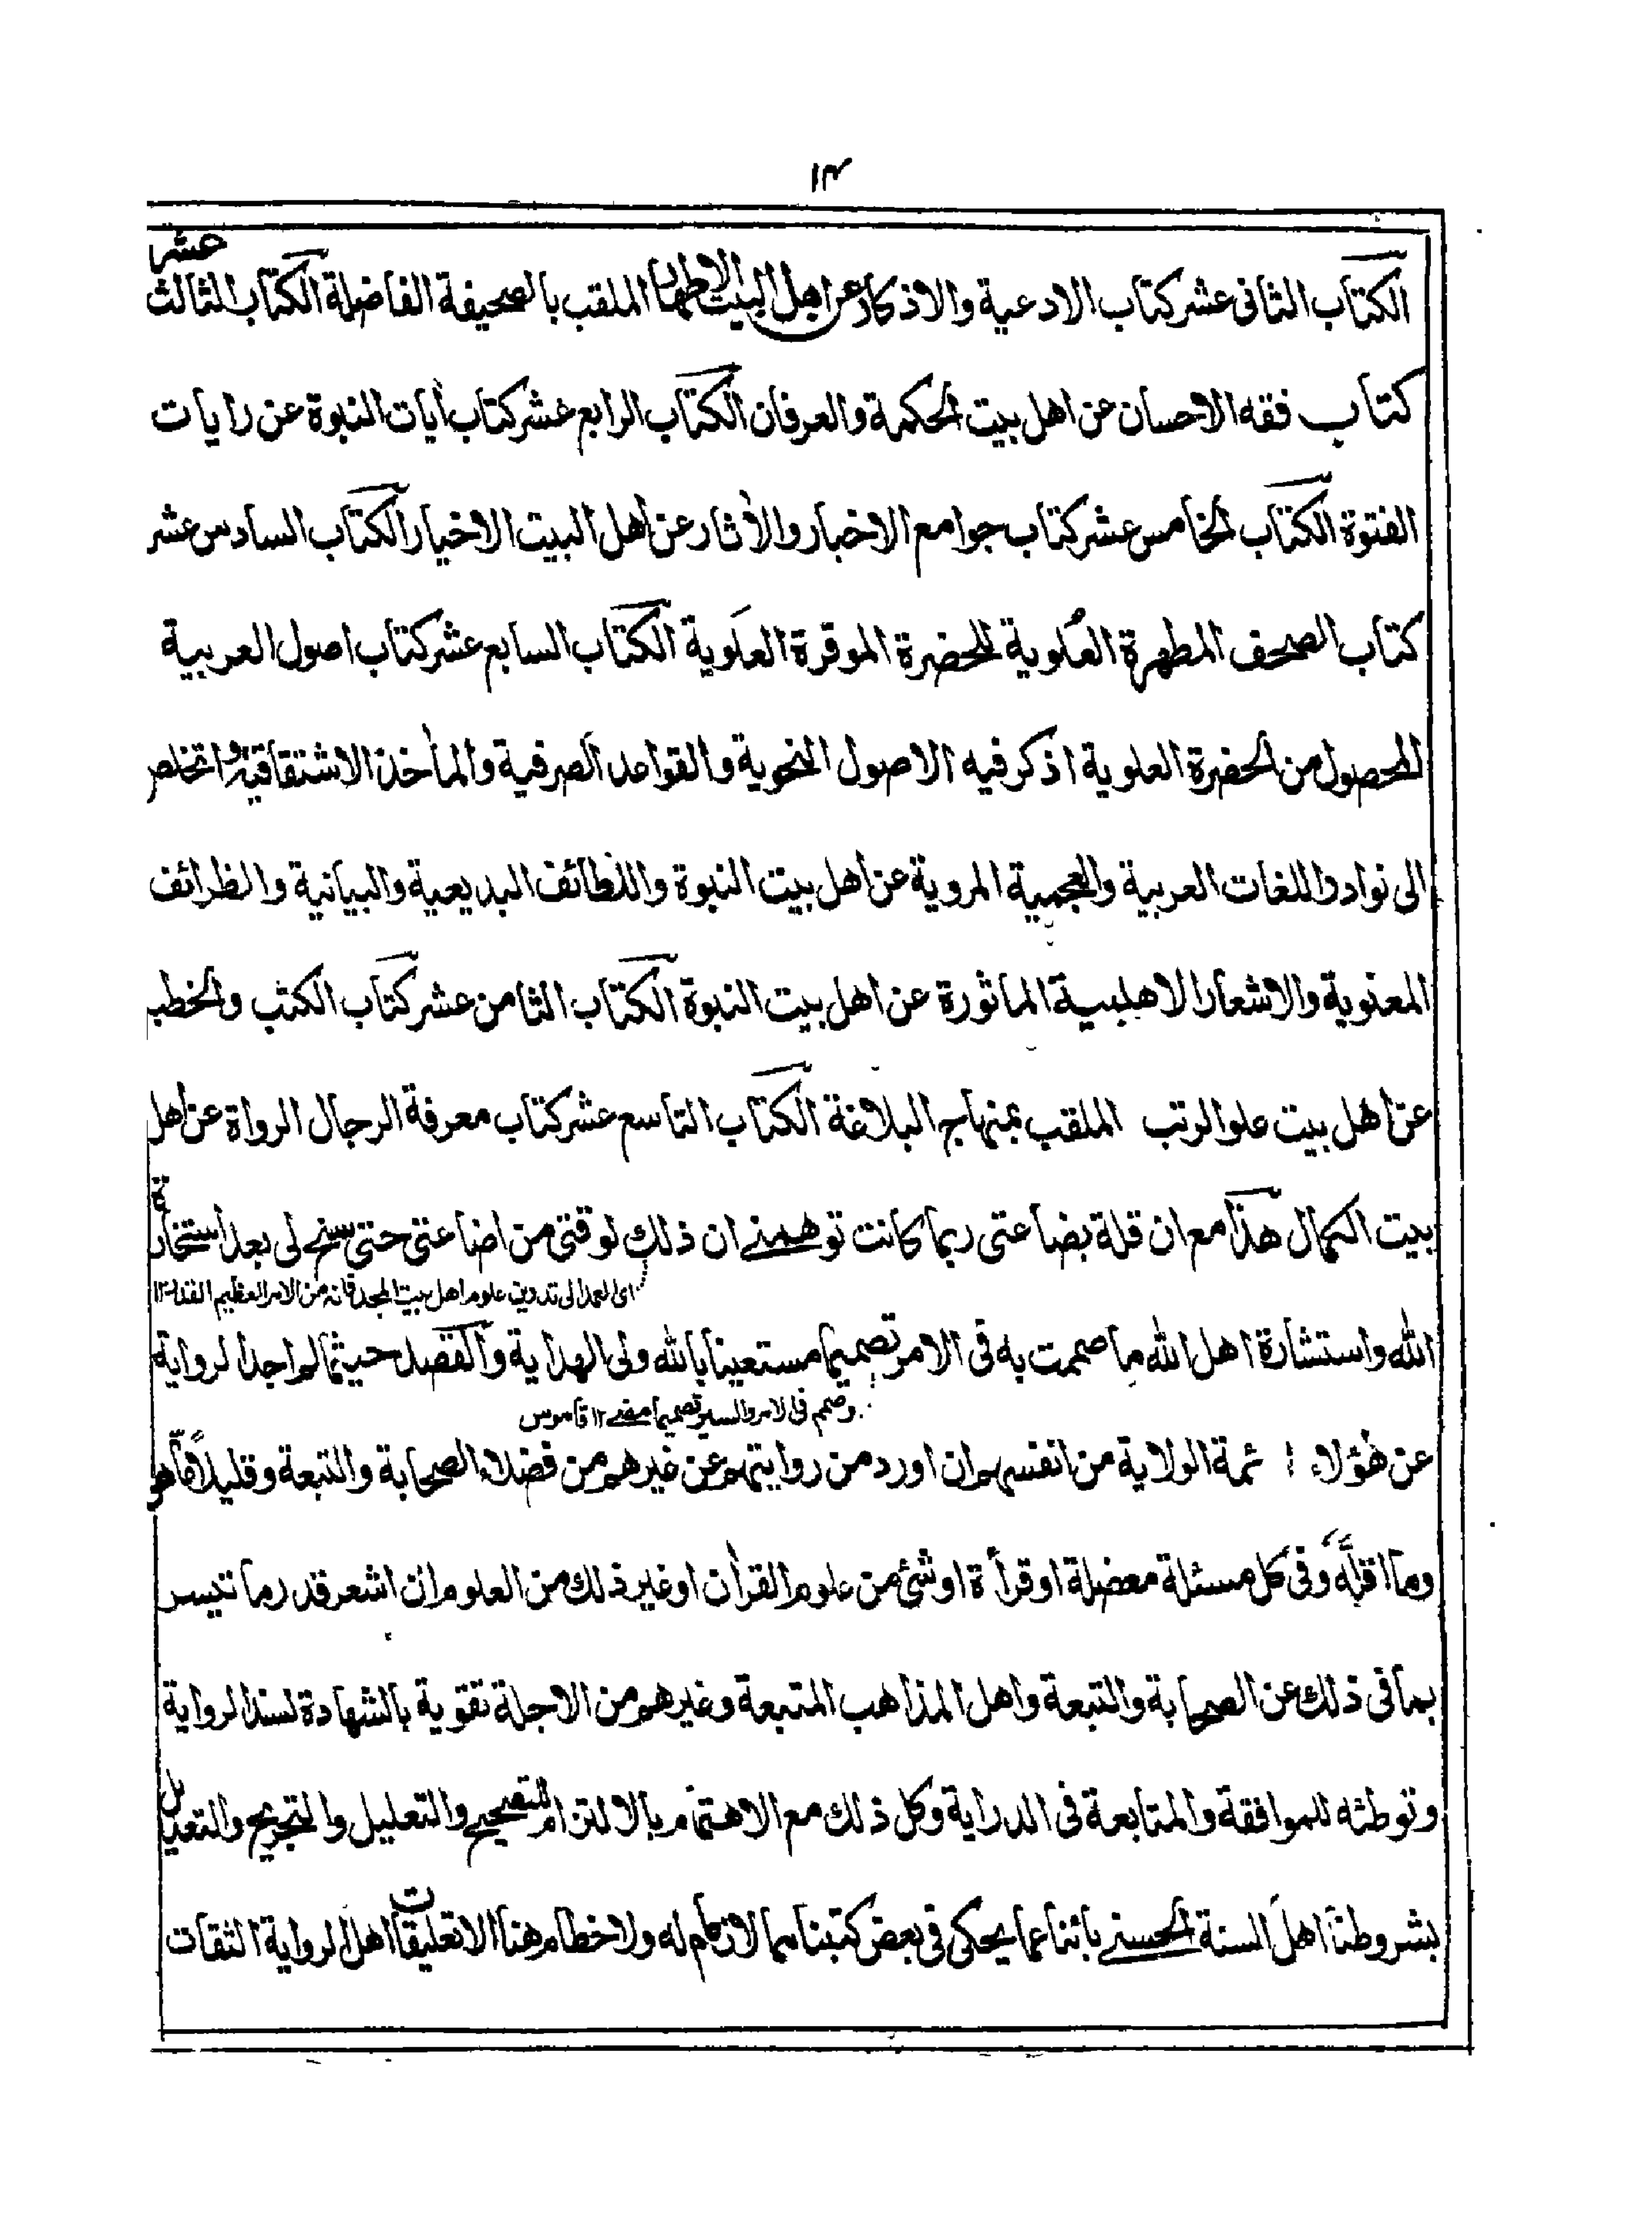 ١٣
الكتاب الثانى عشر كتاب الادعية والاذكار عن اهل البيت الاطهار الملقب بالصحيفة الفاضلة الكتاب الثالث عشر
كتاب فقه الاحسان عن اهل بيت الحكمة والعرفان الكتاب الرابع عشر كتاب أيات النبوة عن رايات
الفتوة الكتاب الخامس عشر كتاب جوامع الاخبار والأثار عن اهل البيت الاخيار الكتاب السادس عشر
كتاب الصحف المطهرة العُلوية للحضرة الموقرة العَلوية الكتاب السابع عشر كتاب اصول العربية
المحصول من الحضرة العلوية اذكر فيه الاصول النحوية والقواعد الصرفية والمأخذ الاشتقاقية واتخلص
الى نوادر اللغات العربية والعجمية المروية عن اهل بيت النبوة واللطائف البديعية والبيانية والظرائف
المعنوية والاشعار الاهلبيية الماثورة عن اهل بيت النبوة الكتاب الثامن عشر كتاب الكتب والخطب
عن اهل بيت علو الرتب الملقب بمنهاج البلاغة الكتاب التاسع عشر كتاب معرفة الرجال الرواة عن اهل
بيت الكمال هذا مع ان قلة بضاعتى ربما كانت توهمنے ان ذلك لو قتى من اضاعتى حتى سنح لى بعد استخارة
اى العمد الى تدوين علوم اهل بيت المجد فانه من الامر العظيم القدر ١٢
الله واستشارة اهل الله ما صممت به فى الامر تصميما مستعينا بالله ولى الهداية والقصد حيثما لم اجد الرواية
وصمم فى الامر والسير تصميما مضے ١٢ قاموس
عن هؤلاء ائمة الولاية من انفسهم ان اورد من روايتهم عن غيرهم من فضلاء الصحابة والتبعة وقليلاً مّا هو
وما اقلّه وفى كل مسئلة معضلة او قرأة او شئ من علوم القرأن او غير ذلك من العلوم ان اشعر قدر ما تيسر
بما فى ذلك عن الصحابة والتبعة واهل المذاهب المتبعة وغيرهم من الاجلة تقوية بالشهادة لسند الرواية
وتوطئه للموافقة والمتابعة فى الدراية وكل ذلك مع الاهتمام بالالتزام للتصحيح والتعليل والتجريح والتعديل
بشروطنا اهل السنة الحسنے باثنا عما يحكى فى بعض كتبنا مما لا زمام له ولا خطام هنا الا تعليقات اهل الرواية الثقات